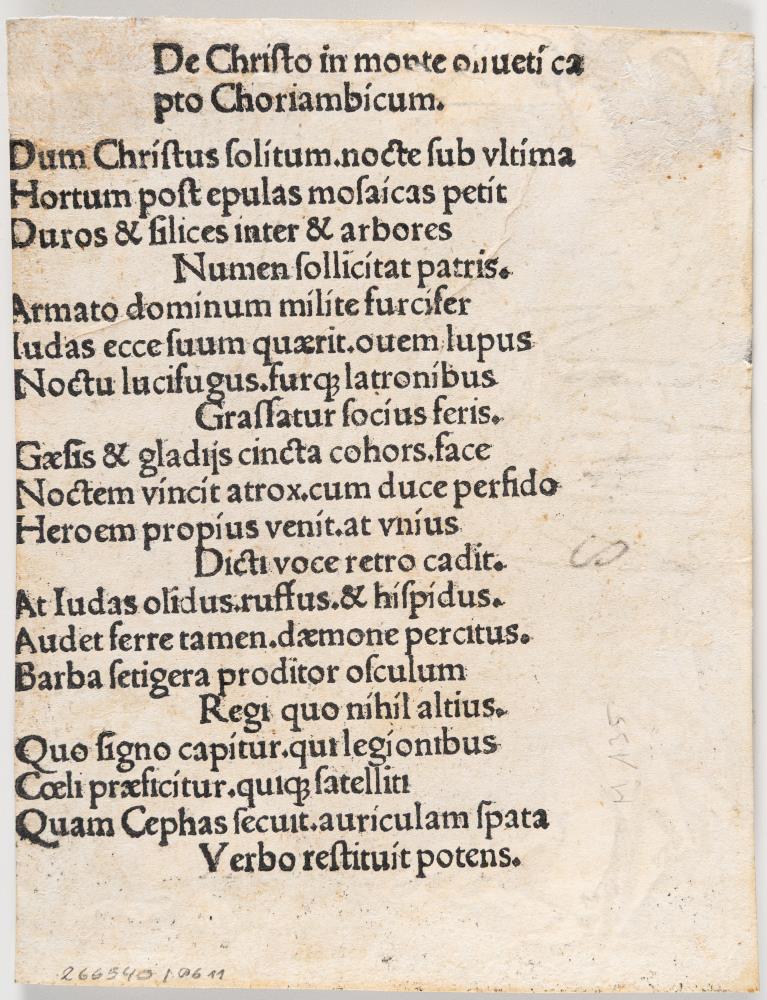 De Chriſto in monte oliueti ca
pto Choriambicum.
Dum Chriſtus ſolitum.nocte ſub vltima
Hortum poſt epulas moſaicas petit
Duros & ſilices inter & arbores
Numen ſollicitat patris.
Armato dominum milite furcifer
Iudas ecce ſuum quærit.ouem lupus
Noctu lucifugus.furqꝫ latronibus
Graſſatur ſocius feris.
Gæſis & gladijs cincta cohors.face
Noctem vincit atrox.cum duce perfido
Heroem propius venit.at vnius
Dicti voce retro cadit.
At Iudas olidus.ruffus.& hiſpidus.
Audet ferre tamen.dæmone percitus.
Barba ſetigera proditor oſculum
Regi quo nihil altius.
Quo ſigno capitur.qui legionibus
Cœli præficitur.quiqꝫ ſatelliti
Quam Cephas ſecuit.auriculam ſpata
Verbo reſtituit potens.
M 135